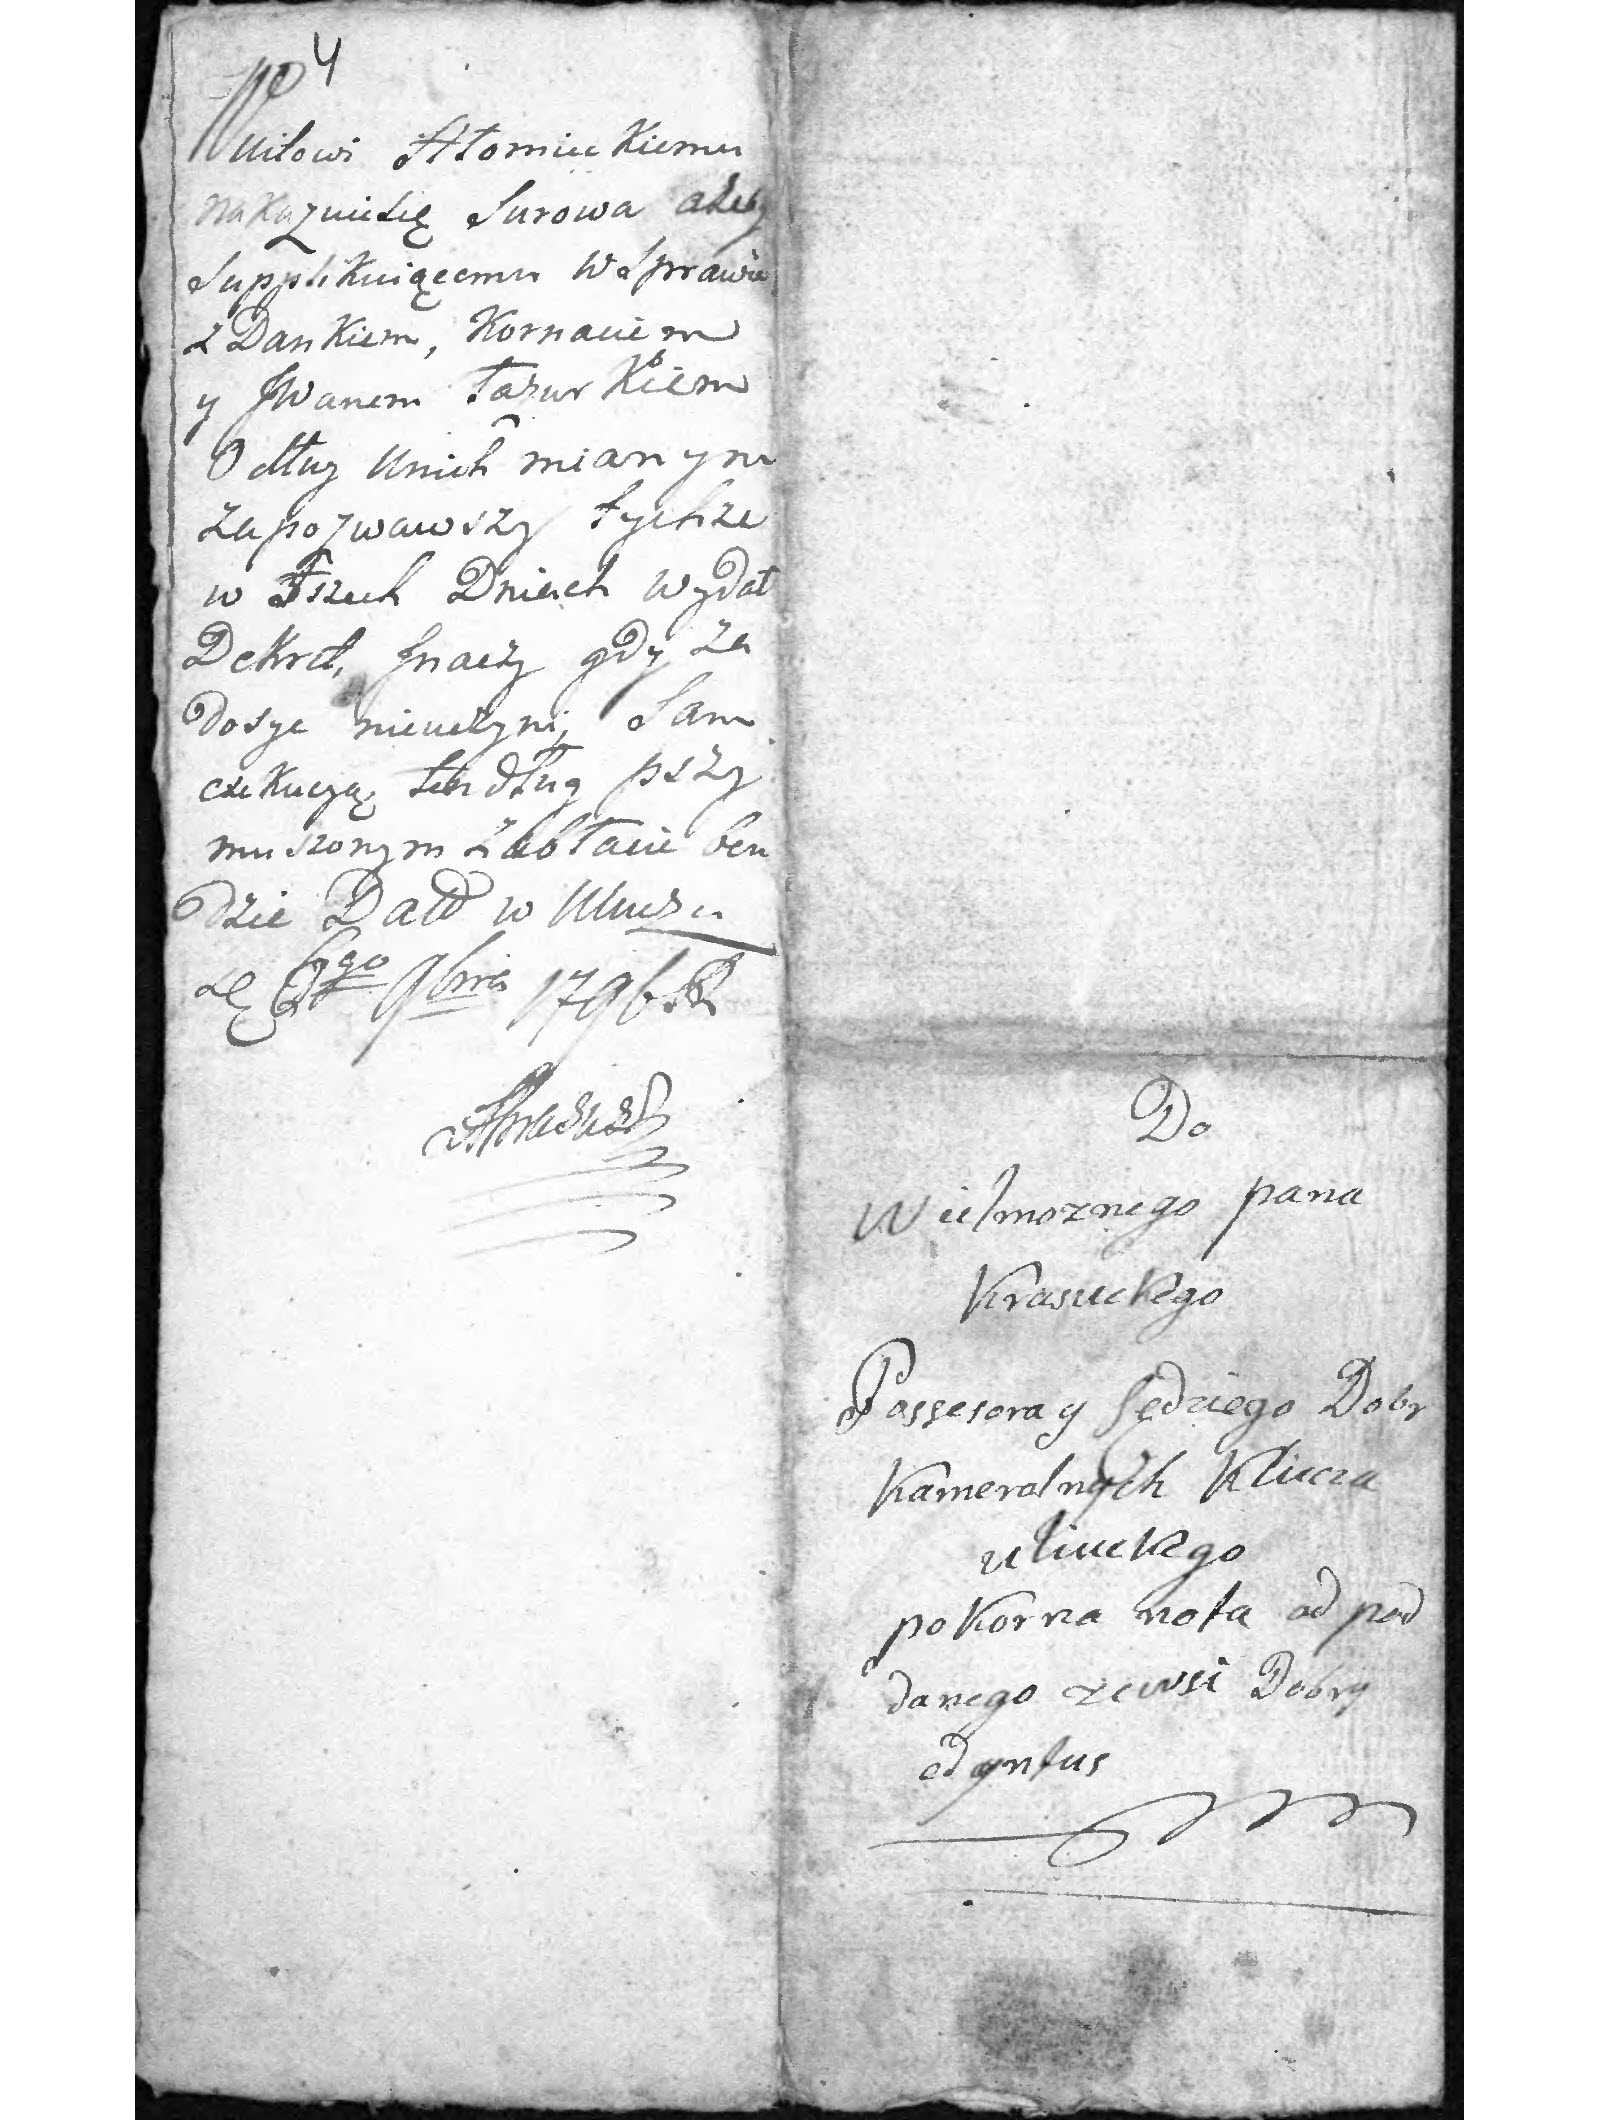 4
Wuitowi Hłomieckiemu
nakazuiesię Surowa ażeby
Supplikuiącemu w Sprawie
z Dankiem, Kornaciem
y Jwanem Łazurkiem
O dług Unich mianym
zapozwawszy tychże
w Trzech Dniach wydał
Dekret, Jnaczy gdy za
dosyc nieuczyni, Sam
exekucyą ten dług przy
muszonym zapłacic ben
dzie Datt w Uluczu
6go 9bris 1796 R
Do
Wielmoznego pana
Krasuckego
Possesora y Sędziego Dobr
Kameralnych Klucza
uliuckego
pokorna nota od pod
danego zewsi Dobry
adyntus